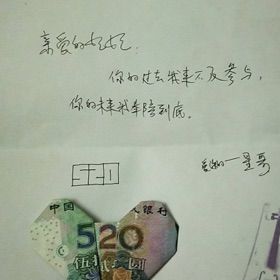 亲爱的好好:
你的过去我来不及参与,
你的未来我奉陪到底。
爱你的一星哥
中国 人民银行
520